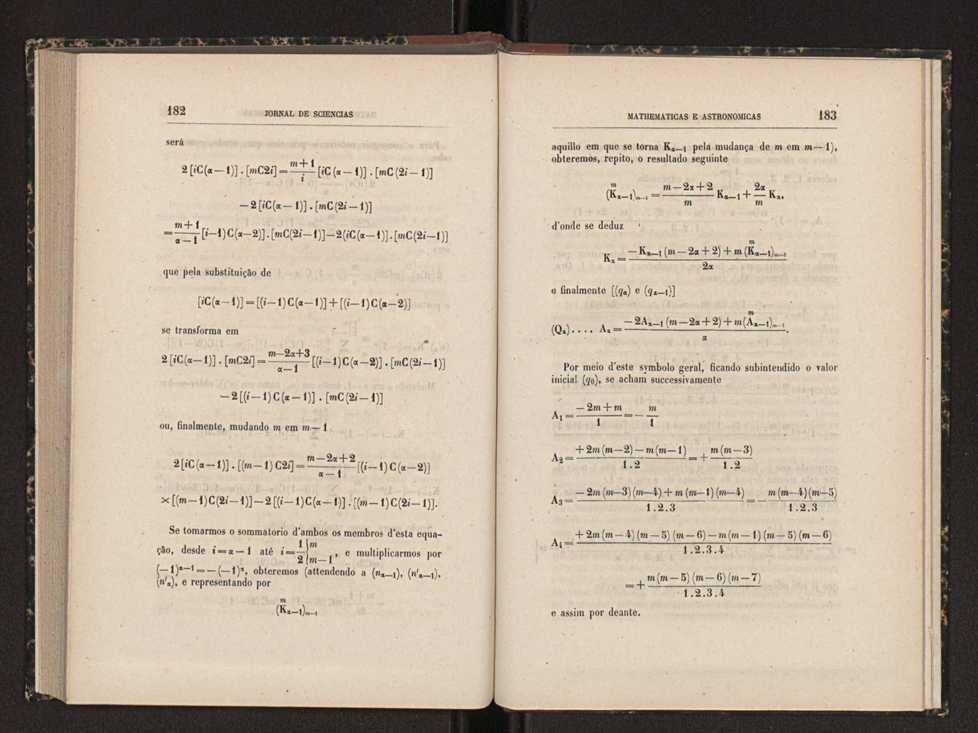 182
JORNAL DE SCIENCIAS
será
2 [iC(α—1)] . [mC2i] = \frac{m+1}{i} [iC (α—1)] . [mC (2i—1)]
—2 [iC(α—1)] . [mC(2i—1)]
= \frac{m+1}{α—1} [i—1) C(α—2)] . [mC(2i—1)]—2(iC(α—1)] . [mC(2i—1)]
que pela substituição de
[iC(α—1)] = [(i—1) C(α—1)] + [(i—1) C(α—2)]
se transforma em
2 [iC(α—1)] . [mC2i] = \frac{m—2α+3}{α—1} [(i—1) C(α—2)] . [mC(2i—1)]
—2 [(i—1) C (α—1)] . [mC (2i—1)]
ou, finalmente, mudando m em m—1
2[iC(α—1)] . [(m—1) C2i] = \frac{m—2α+2}{α—1} [(i—1) C(α—2)]
×[(m—1) C(2i—1)]—2 [(i—1) C(α—1)] . [(m—1) C(2i—1)].
Se tomarmos o sommatorio d'ambos os membros d'esta equa-
ção, desde i=α—1 até i=\frac{1}{2}{m / m—1, e multiplicarmos por
(—1)^{α—1}=—(—1)^{α}, obteremos (attendendo a (n_{α—1}), (n'_{α—1}),
(n'_{α}), e representando por
(\overset{m}{K}_{α—1})_{m—1}
MATHEMATICAS E ASTRONOMICAS
183
aquillo em que se torna K_{α—1} pela mudança de m em m—1),
obteremos, repito, o resultado seguinte
(\overset{m}{K}_{α—1})_{m—1} = \frac{m—2α+2}{m} K_{α—1} + \frac{2α}{m} K_{α},
d'onde se deduz
K_{α} = \frac{—K_{α—1} (m—2α+2) + m (\overset{m}{K}_{α—1})_{m—1}}{2α}
e finalmente [(q_{α}) e (q_{α—1})]
(Q_{α}) .... A_{α} = \frac{—2A_{α—1} (m—2α+2) + m (\overset{m}{A}_{α—1})_{m—1}}{α}.
Por meio d'este symbolo geral, ficando subintendido o valor
inicial (q_{0}), se acham successivamente
A_{1} = \frac{—2m+m}{1} = — \frac{m}{1}
A_{2} = \frac{+2m (m—2) — m (m—1)}{1.2} = + \frac{m (m—3)}{1.2}
A_{3} = \frac{—2m (m—3) (m—4) + m (m—1) (m—4)}{1.2.3} = — \frac{m (m—4) (m—5)}{1.2.3}
A_{4} = \frac{+2m (m—4) (m—5) (m—6) — m (m—1) (m—5) (m—6)}{1.2.3.4}
= + \frac{m (m—5) (m—6) (m—7)}{1.2.3.4}
e assim por deante.